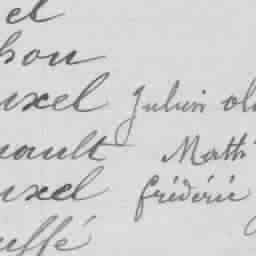 el
hou
uxel Julien ol
nault Math
uxel frédéric
uffé